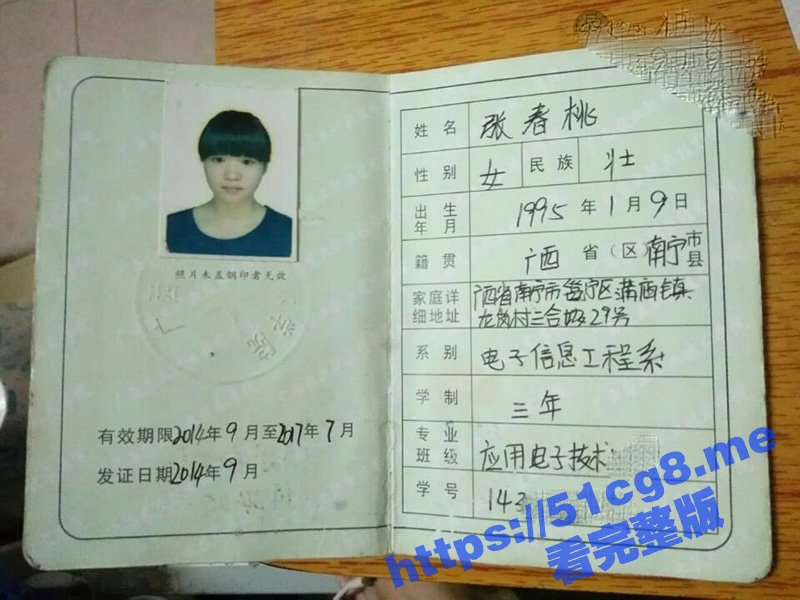 照片未盖钢印者无效
有效期限2014年9月至2017年7月
发证日期2014年9月
姓名 张春桃
性别 女 民族 壮
出生年月 1995年1月9日
籍贯 广西省(区)南宁市县
家庭详细地址 广西省南宁市邕宁区蒲庙镇
龙岗村三合坡29号
系别 电子信息工程系
学制 三年
专业班级 应用电子技术
学号 143
https://51cg8.me
看完整版